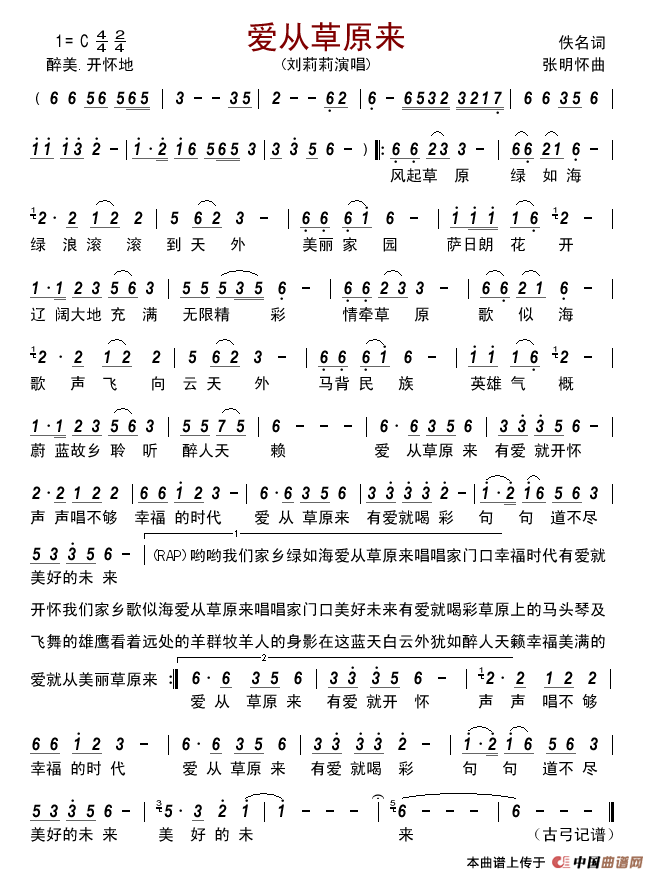 爱从草原来
1= C 4/4 2/4
佚名词
醉美.开怀地
(刘莉莉演唱)
张明怀曲
( 6 6 56 565 | 3 - - 35 | 2 - - 62 | 6 - 6532 3217 | 6 6 35 6 |
11 13 2 - | 1·2 16 565 3 | 3 3 5 6 - ) ‖: 6 6 23 3 - | 66 21 6 - |
风起草 原 绿 如 海
2· 2 12 2 | 5 62 3 - | 6 6 61 6 - | 1 11 16 2 - |
绿 浪滚 滚 到天 外 美丽 家 园 萨日朗 花 开
1·1 23 56 3 | 55 535 6 - | 66 23 3 - | 66 21 6 - |
辽 阔大地 充 满 无限精 彩 情牵草 原 歌 似 海
2· 2 12 2 | 5 62 3 - | 6 6 61 6 - | 11 16 2 - |
歌 声 飞 向 云 天 外 马背 民 族 英雄 气 概
1·1 23 56 3 | 55 75 6 - | 6· 6 35 6 | 33 35 6 |
蔚 蓝故乡 聆 听 醉人天 赖 爱 从草原 来 有爱 就开怀
2·2 12 3 - | 66 12 3 - | 6·6 35 6 | 33 33 2 - | 1·2 16 56 3 |
声 声唱不够 幸福 的时代 爱 从 草原来 有爱就喝 彩 句 句 道不尽
53 35 6 - | 1 (RAP)哟哟我们家乡绿如海爱从草原来唱唱家门口幸福时代有爱就
美好的未 来
开怀我们家乡歌似海爱从草原来唱唱家门口美好未来有爱就喝彩草原上的马头琴及
飞舞的雄鹰看着远处的羊群牧羊人的身影在这蓝天白云外犹如醉人天籁幸福美满的
2
爱就从美丽草原来 :‖ 6· 6 35 6 | 33 35 6 | 2· 2 12 |
爱 从 草原 来 有爱 就开 怀 声 声 唱不 够
66 12 3 - | 6·6 35 6 | 33 33 2 - | 1·2 16 56 3 |
幸福 的时 代 爱 从 草原 来 有爱 就喝 彩 句 句 道不 尽
53 35 6 - | 5· 3 2 1 | 1 - - - | 6 - - - | 6 - - - ‖
美好的未 来 美 好 的 未 来 (古弓记谱)
本曲谱上传于 中国曲谱网